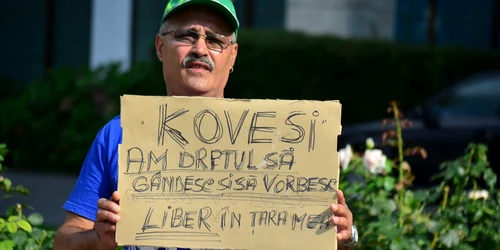 "KOVESI"
AM DRPTUL SĂ
GÂNDESC SI SĂ VORBESC
LIBER ÎN ȚARA MEA